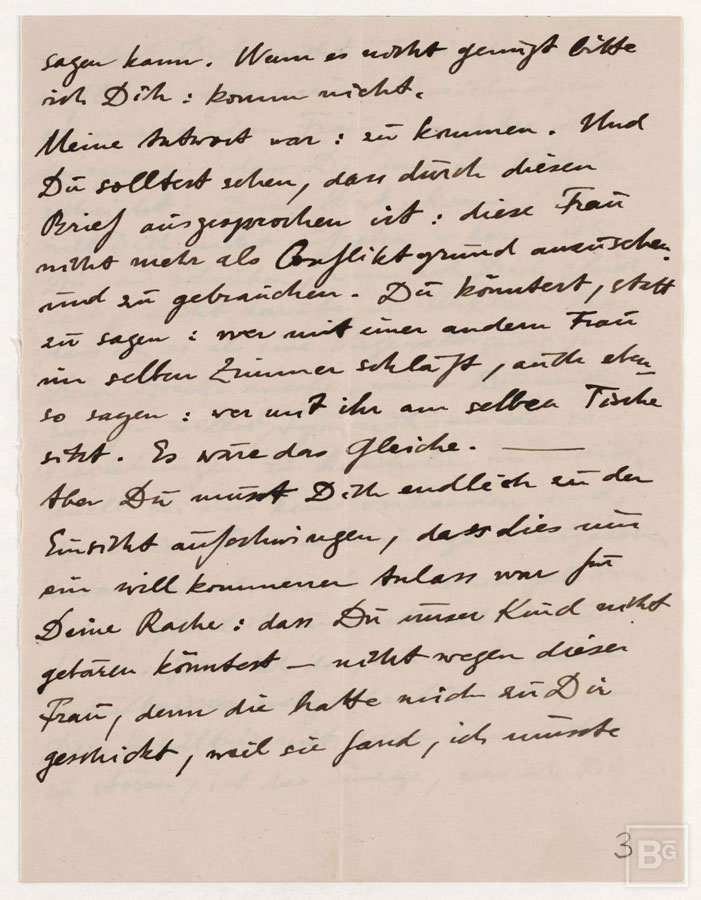 sagen kann. Wenn es nicht genügt bitte
ich Dich : komm nicht.
Meine Antwort war : zu kommen. Und
Du solltest sehen, dass durch diesen
Brief ausgesprochen ist : diese Frau
nicht mehr als Confliktgrund anzusehen
und zu gebrauchen. Du könntest, statt
zu sagen : wer mit einer andern Frau
im selben Zimmer schläft, auch eben
so sagen : wer mit ihr am selben Tische
sitzt. Es wäre das Gleiche. —
Aber Du musst Dich endlich zu der
Einsicht aufschwingen, dass dies nur
ein willkommener Anlass war für
Deine Rache : dass Du unser Kind nicht
gebären könntest — nicht wegen dieser
Frau, denn die hatte mich zu Dir
geschickt, weil sie fand, ich müsste
3
BG